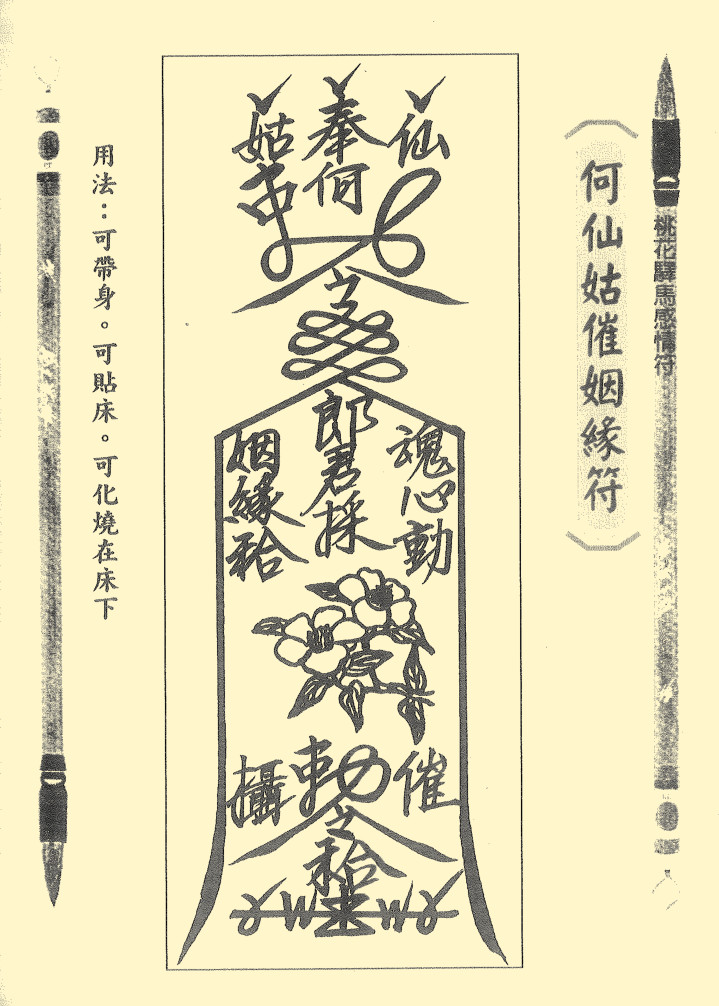 桃花驛馬感情符
（何仙姑催姻緣符）
仙
奉何
姑
勅令
魂心動
郎君採
姻緣和合
催
勅令
攝
和合
用法：可帶身。可貼床。可化燒在床下